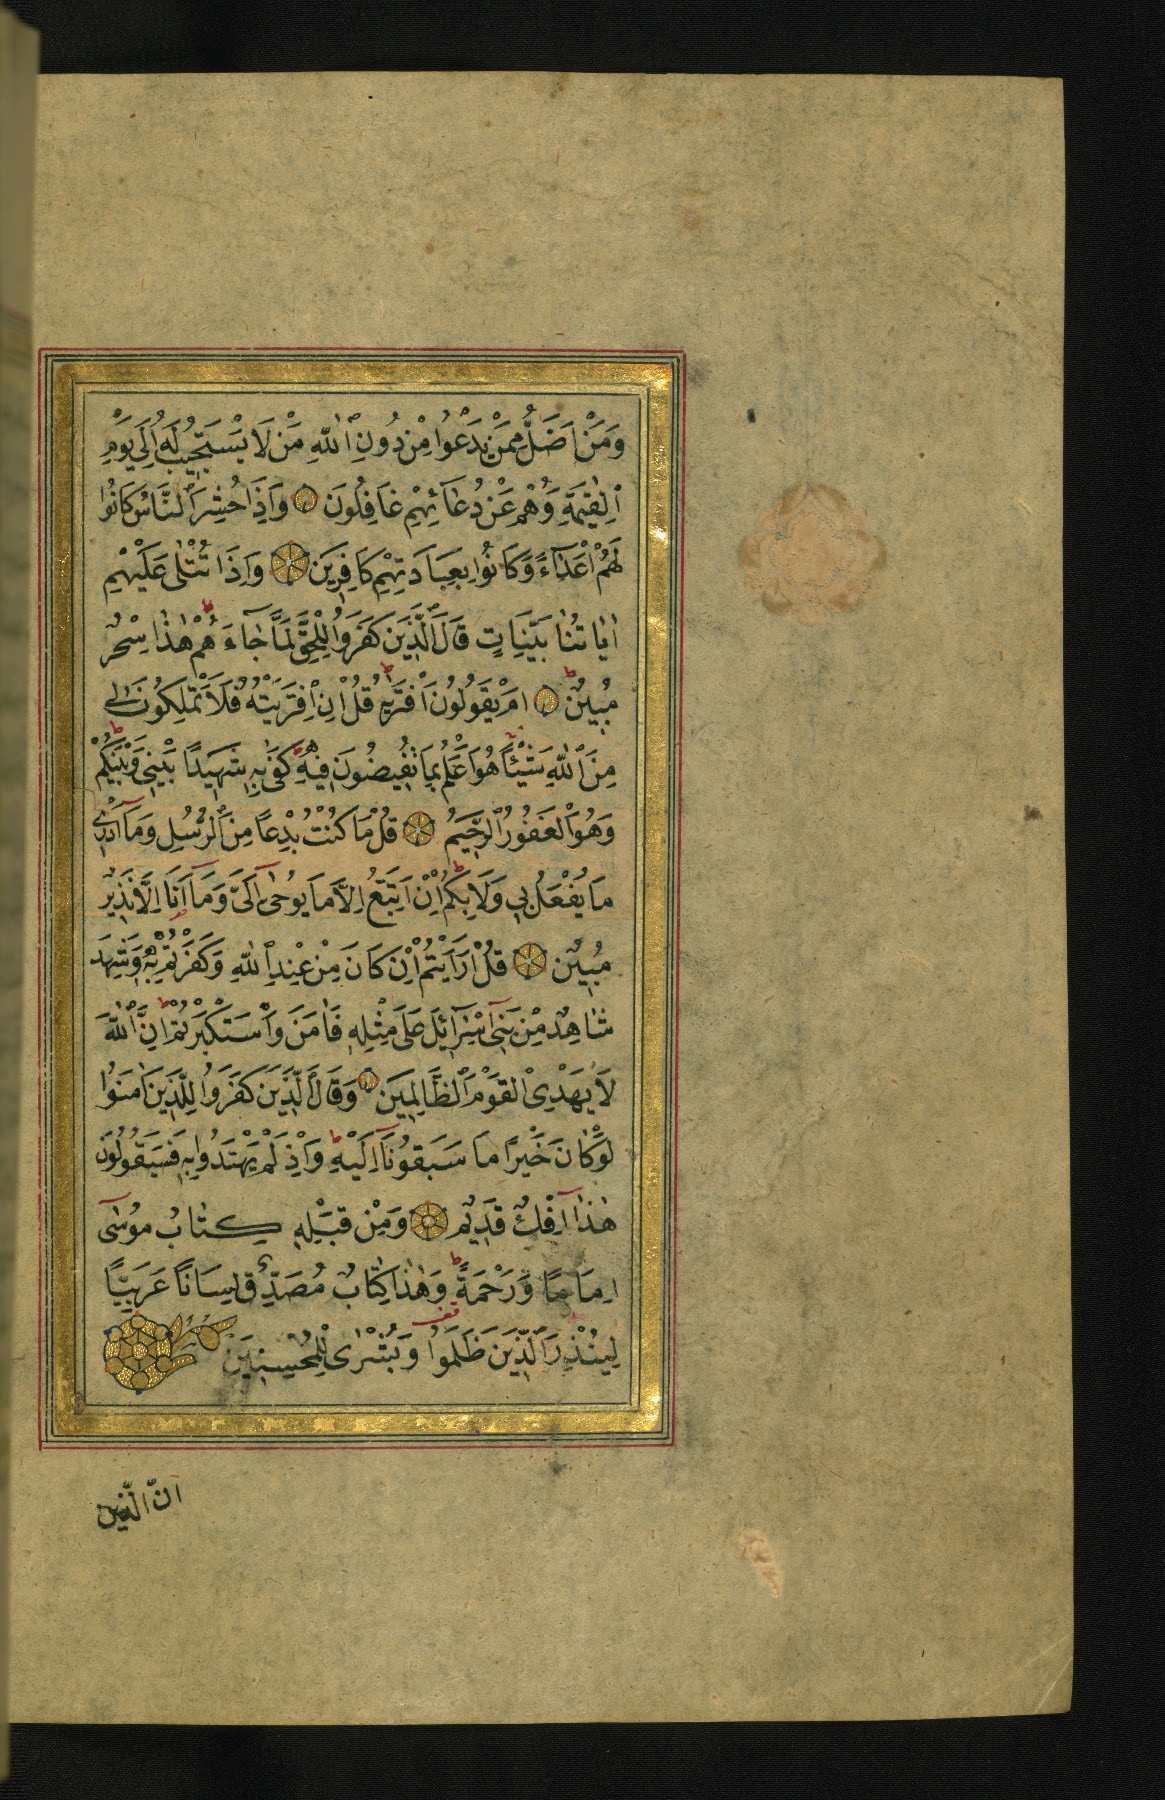 وَمَنْ اَضَلُّ مِمَّنْ يَدْعُوا مِنْ دُونِ ٱللّٰهِ مَنْ لَا يَسْتَجِيبُ لَهُ اِلٰى يَوْمِ
ٱلْقِيٰمَةِ وَهُمْ عَنْ دُعَآئِهِمْ غَافِلُونَ وَاِذَا حُشِرَ ٱلنَّاسُ كَانُوا
لَهُمْ اَعْدَآءً وَكَانُوا بِعِبَادَتِهِمْ كَافِرِينَ وَاِذَا تُتْلٰى عَلَيْهِمْ
اٰيَاتُنَا بَيِّنَاتٍ قَالَ ٱلَّذِينَ كَفَرُوا لِلْحَقِّ لَمَّا جَآءَهُمْ هٰذَا سِحْرٌ
مُبِينٌ ط اَمْ يَقُولُونَ ٱفْتَرٰيهُ ط قُلْ اِنِ ٱفْتَرَيْتُهُ فَلَا تَمْلِكُونَ لِى
مِنَ ٱللّٰهِ شَيْئًا هُوَ اَعْلَمُ بِمَا تُفِيضُونَ فِيهِ كَفٰى بِهِ شَهِيدًا بَيْنِى وَبَيْنَكُمْ ط
وَهُوَ ٱلْغَفُورُ ٱلرَّحِيمُ قُلْ مَا كُنْتُ بِدْعًا مِنَ ٱلرُّسُلِ وَمَآ اَدْرِى
مَا يُفْعَلُ بِى وَلَا بِكُمْ ط اِنْ اَتَّبِعُ اِلَّا مَا يُوحٰٓى اِلَىَّ وَمَآ اَنَا اِلَّا نَذِيرٌ
مُبِينٌ قُلْ اَرَاَيْتُمْ اِنْ كَانَ مِنْ عِنْدِ ٱللّٰهِ وَكَفَرْتُمْ بِهِ وَشَهِدَ
شَاهِدٌ مِنْ بَنِىٓ اِسْرَآئِلَ عَلٰى مِثْلِهِ فَاٰمَنَ وَٱسْتَكْبَرْتُمْ ط اِنَّ ٱللّٰهَ
لَا يَهْدِى ٱلْقَوْمَ ٱلظَّالِمِينَ وَقَالَ ٱلَّذِينَ كَفَرُوا لِلَّذِينَ اٰمَنُوا
لَوْ كَانَ خَيْرًا مَا سَبَقُونَآ اِلَيْهِ ط وَاِذْ لَمْ يَهْتَدُوا بِهِ فَسَيَقُولُونَ
هٰذَآ اِفْكٌ قَدِيمٌ وَمِنْ قَبْلِهِ كِتَابُ مُوسٰٓى
اِمَامًا وَرَحْمَةً ط وَهٰذَا كِتَابٌ مُصَدِّقٌ لِسَانًا عَرَبِيًّا
لِيُنْذِرَ ٱلَّذِينَ ظَلَمُوا قف وَبُشْرٰى لِلْمُحْسِنِينَ
انّ الّذين